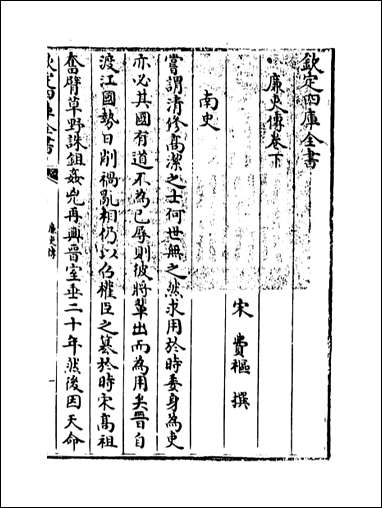 欽定四庫全書
廉吏傳卷下
宋 費樞 撰
南史
嘗謂清修髙潔之士何世無之然求用於時委身為吏
亦必其國有道不為已辱則彼將軰出而為用矣晉自
渡江國勢日削禍亂相仍以召權臣之簒於時宋髙祖
奮臂草野誅鉏姦兇再興晉室垂二十年然後因天命
欽定四庫全書
廉吏傳
一